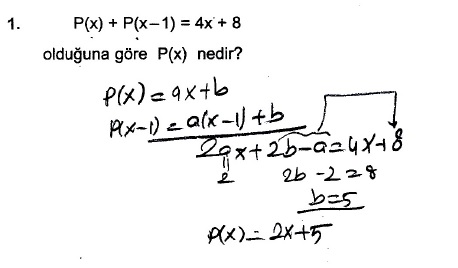 1. P(x) + P(x−1) = 4x + 8
olduğuna göre P(x) nedir?
P(x) = ax+b
P(x-1) = a(x-1)+b
2ax+2b-a=4x+8
2
2b-2=8
b=5
P(x)=2x+5